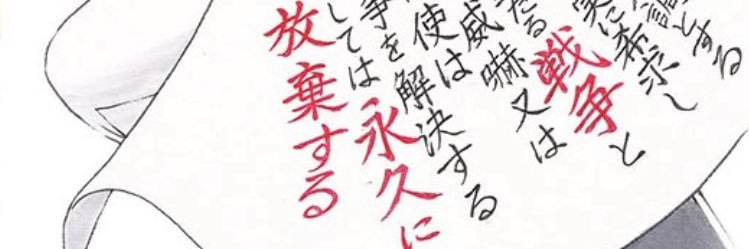 調とする
実に希求し
たる戦争と
威嚇又は
使は
争を解決する
しては永久に
放棄する